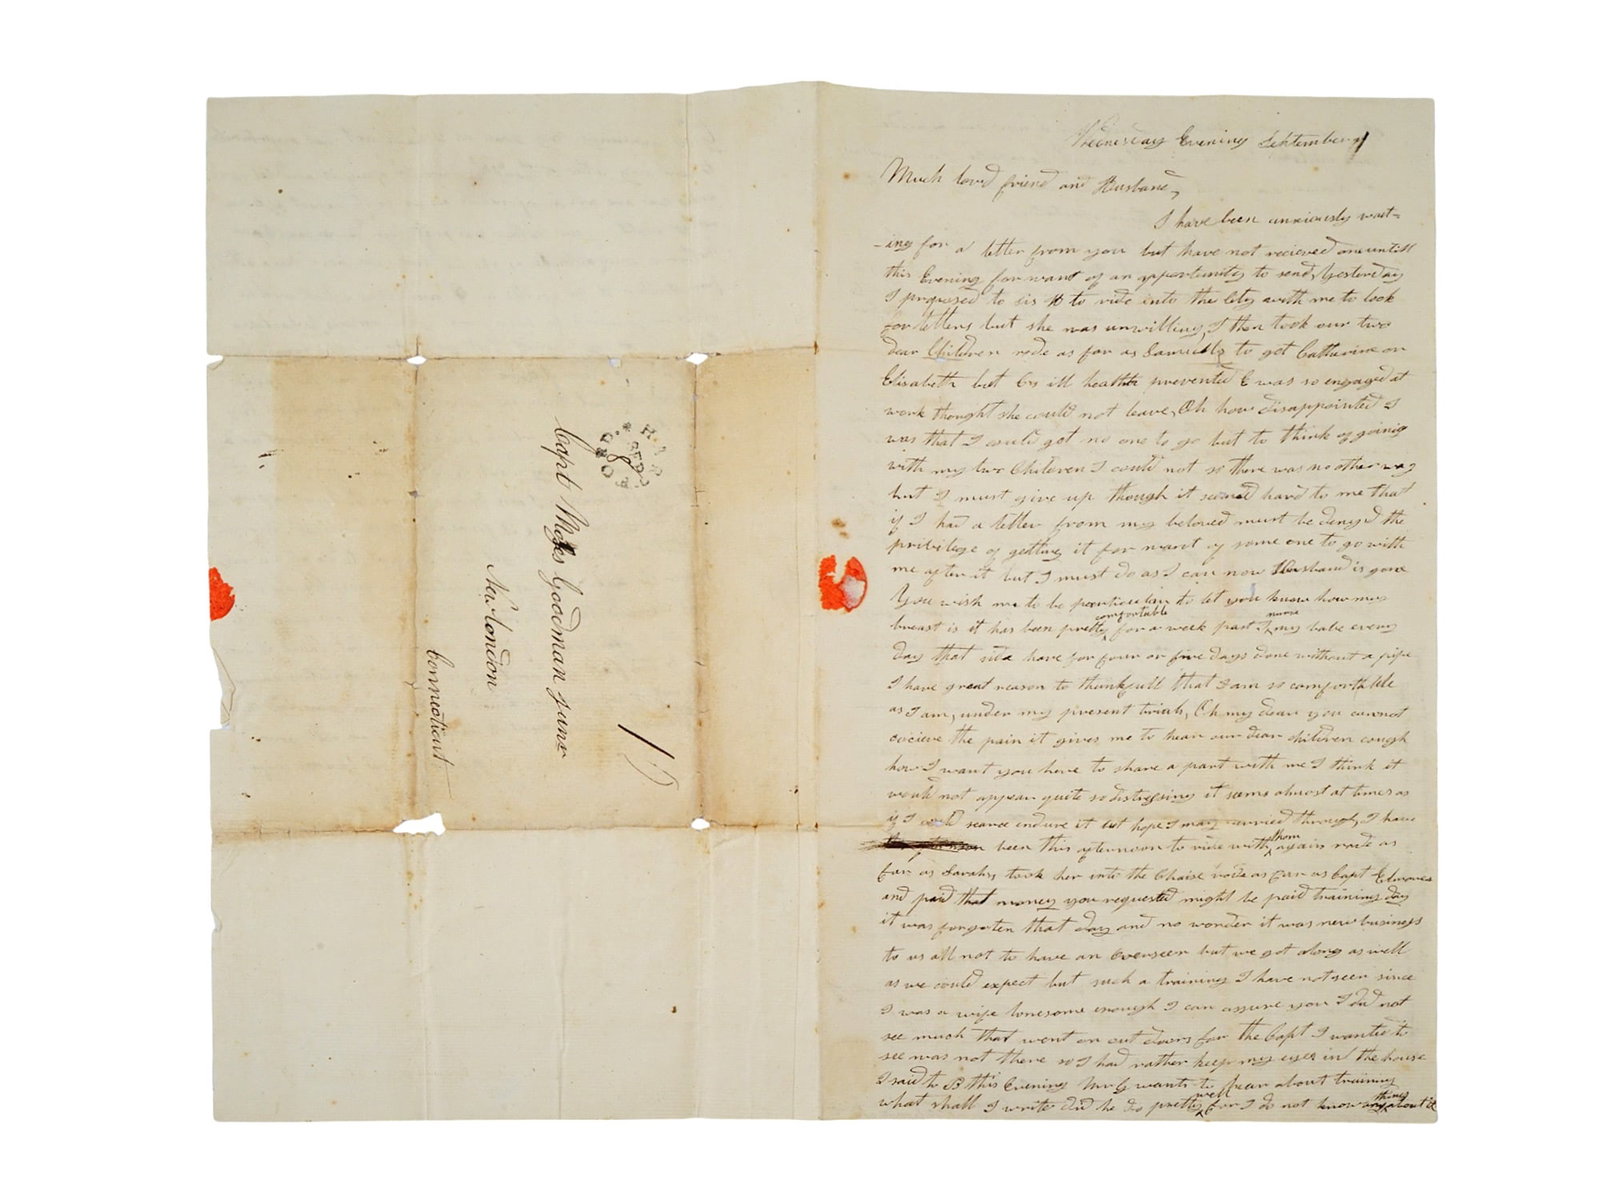 Wednesday Evening September
Much lov'd friend and Husband,
I have been anxiously wait=
-ing for a letter from you but have not recieved one untill
this Evening for want of an opportunity to send, Yesterday
I proposed to sis B to ride into the City with me to look
for letters but she was unwilling, I then took our two
dear Children rode as far as Samuells to get Catharine or
Elisabeth but Cs ill health prevented E was so engaged at
work thought she could not leave, Oh how disappointed I
was that I could get no one to go but to think of going
with my two Children I could not so there was no other way
but I must give up though it seemed hard to me that
if I had a letter from my beloved must be denyed the
privilege of getting it for want of some one to go with
me after it but I must do as I can now Husband is gone
You wish me to be particular to let you know how my
breast is it has been pretty comfortable for a week past I nurse my babe every
day that side have for four or five days done without a pipe
I have great reason to thankfull that I am so comfortable
as I am, under my present trials, Oh my dear you cannot
concieve the pain it gives me to hear our dear children cough
how I want you here to share a part with me I think it
would not appear quite so distressing it seems almost at times as
if I could scarce endure it but hope I may carried through, I have
been this afternoon to ride with them again rode as
far as Sarahs, took her into the Chaise rode as far as Capt
and paid that money you requested might be paid training day
it was forgoten that day and no wonder it was new business
to us all not to have an Overseer but we got along as well
as we could expect but such a training I have not seen since
I was a wife lonesome enough I can assure you I did not
see much that went on out doors for the Capt I wanted to
see was not there so I had rather keep my eyes in the house
I said to B this Evening Mr G wants to hear about training
what shall I write did he do pretty well for I do not know any thing about it
Capt Moses Goodman Junr
New london
Connecticut